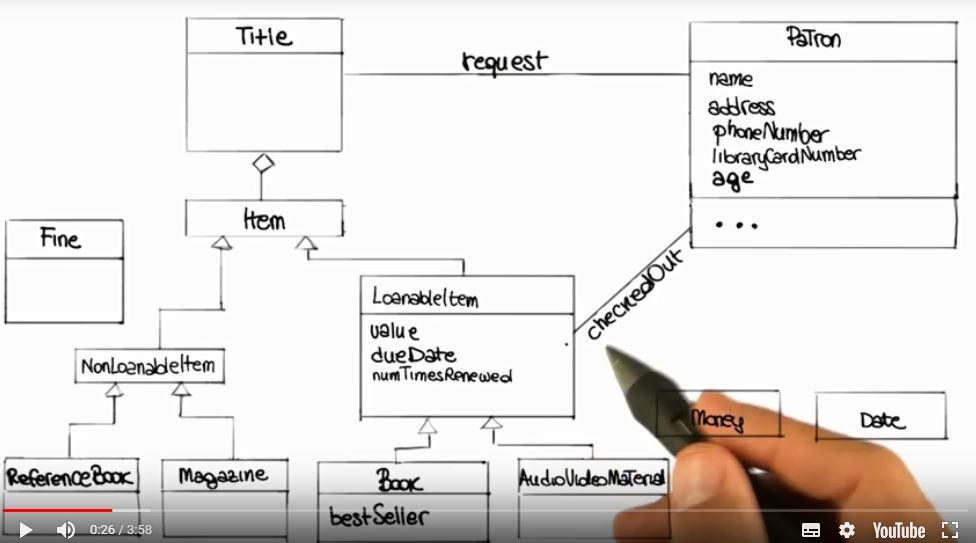 Title
request
Patron
name
address
phoneNumber
libraryCardNumber
age
...
Item
Fine
LoanableItem
value
dueDate
numTimesRenewed
checkedOut
NonLoanableItem
Money
Date
ReferenceBook
Magazine
Book
bestSeller
AudioVideoMaterial
0:26 / 3:58
YouTube